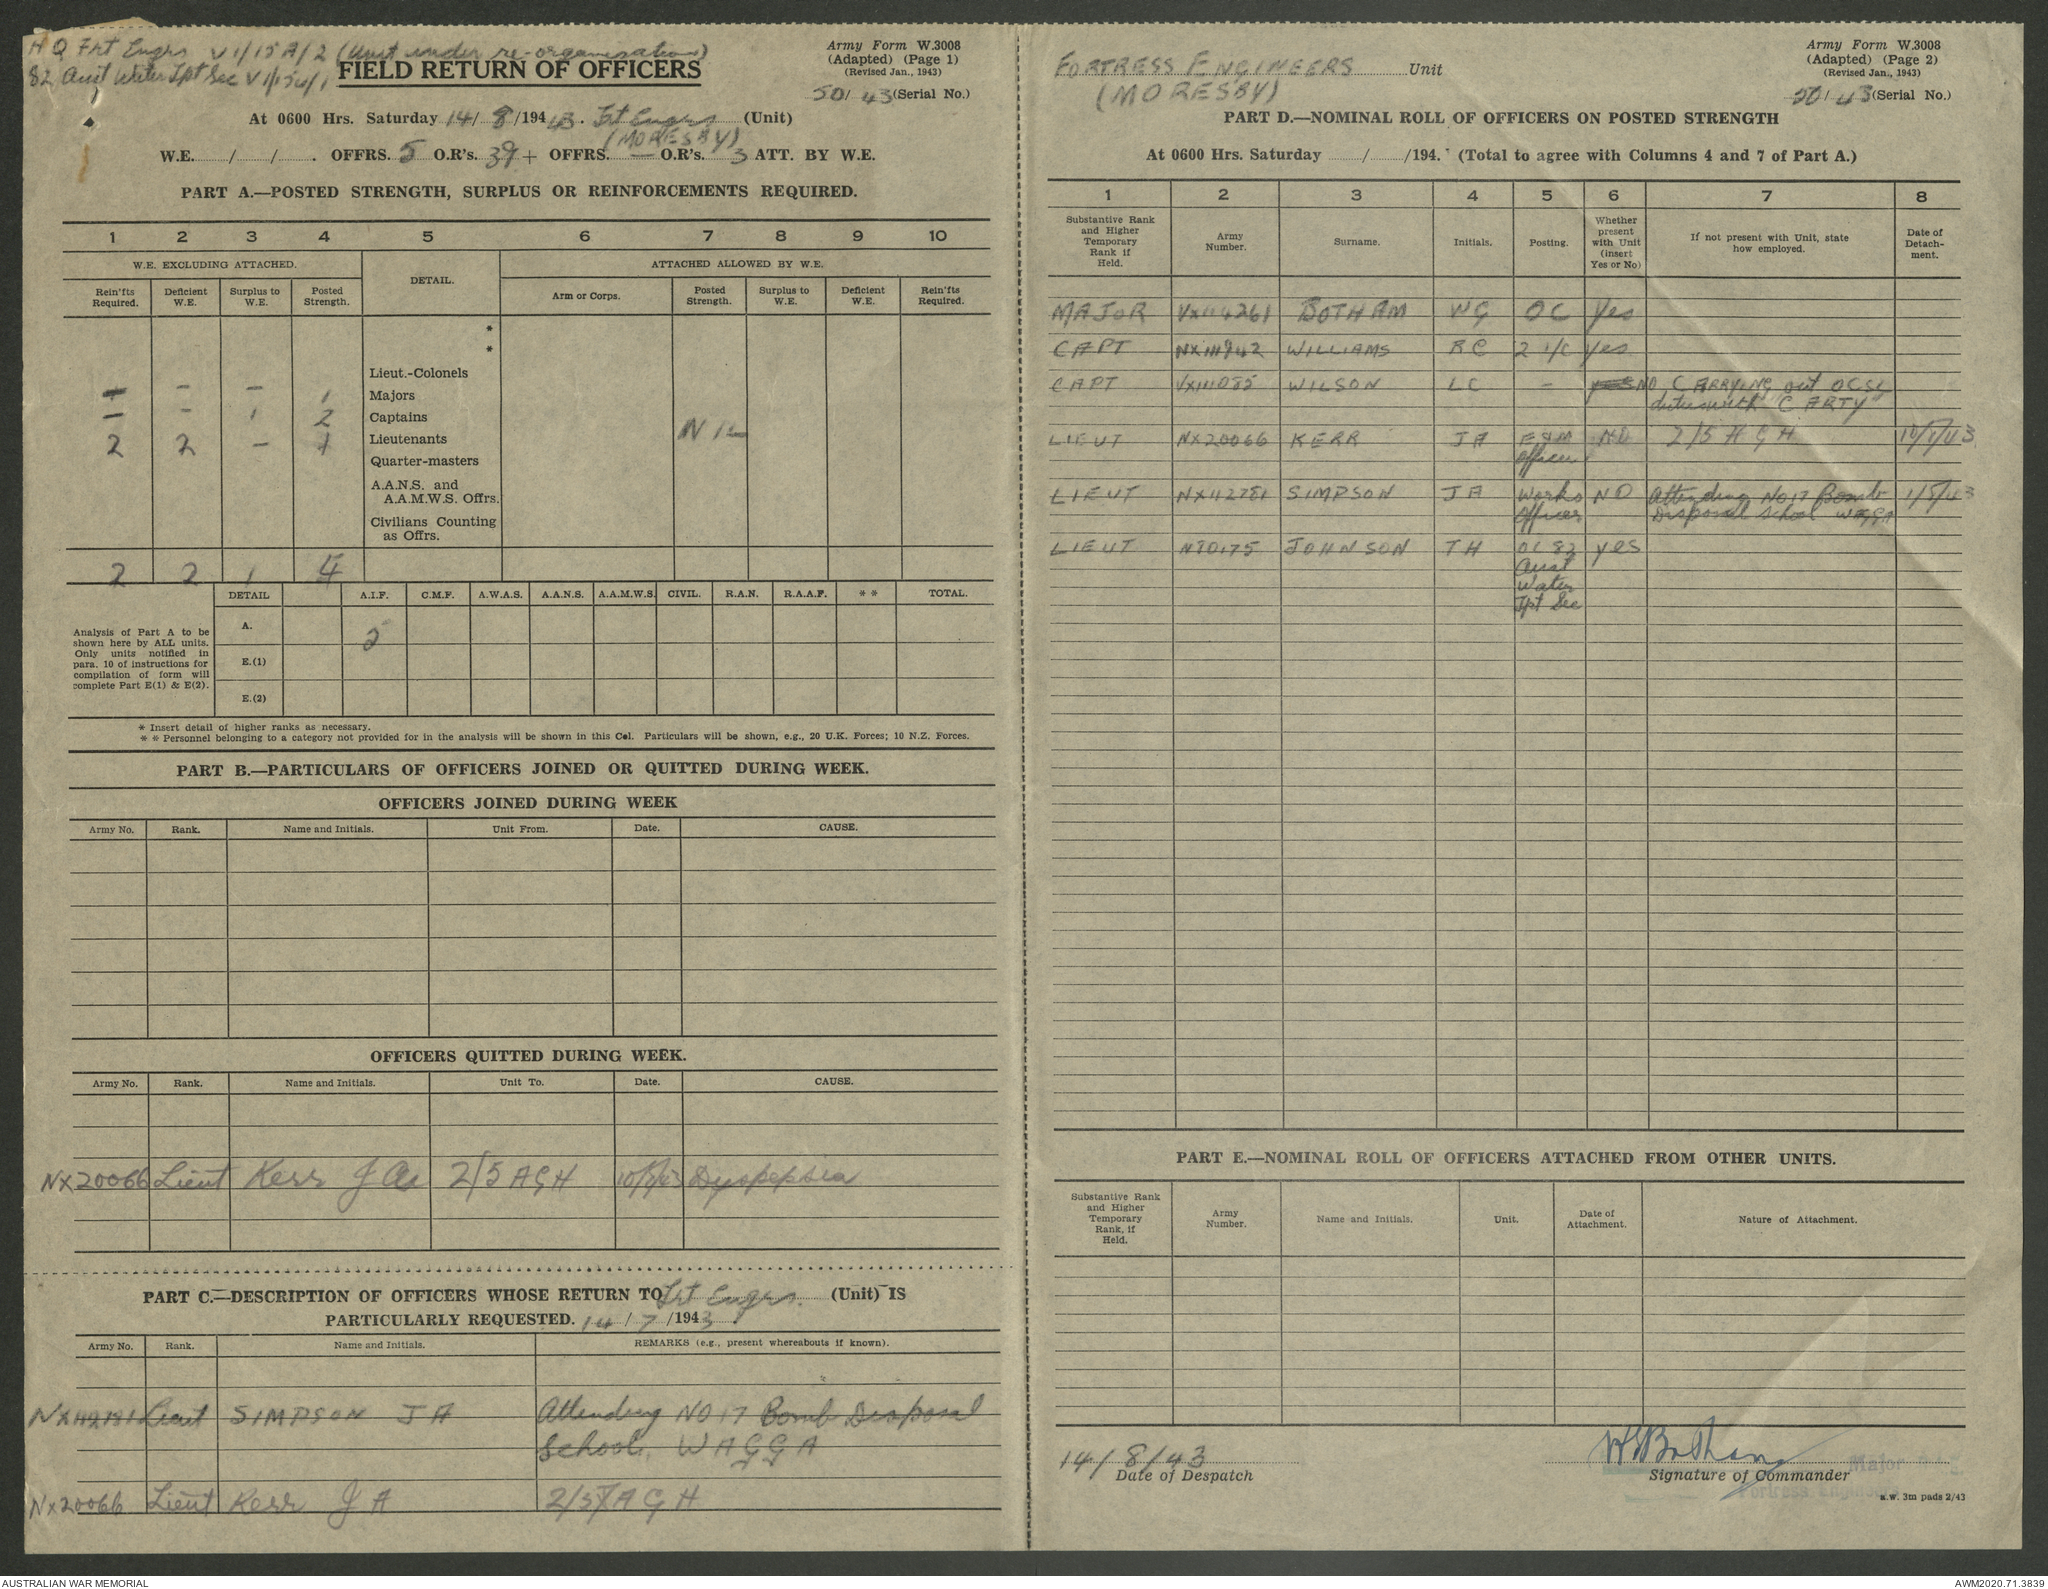 HQ Frt Engrs V 1/15 A/2 (Unit under re-organisation)
82 Aust Water Tpt Sec
FIELD RETURN OF OFFICERS
Army Form W.3008
(Adapted) (Page 1)
(Revised Jan., 1943)
50/43 (Serial No.)
At 0600 Hrs. Saturday 14/8/1943. Frt Engrs (Unit)
(MORESBY)
W.E. / / . OFFRS. 5 O.R's. 39 + OFFRS. — O.R's. 3 ATT. BY W.E.
PART A.—POSTED STRENGTH, SURPLUS OR REINFORCEMENTS REQUIRED.
1 2 3 4 5 6 7 8 9 10
W.E. EXCLUDING ATTACHED. DETAIL. ATTACHED ALLOWED BY W.E.
Rein'fts Required. Deficient W.E. Surplus to W.E. Posted Strength. Arm or Corps. Posted Strength. Surplus to W.E. Deficient W.E. Rein'fts Required.
*
*
Lieut.-Colonels
– – – 1 Majors
– – 1 2 Captains
2 2 – 1 Lieutenants Nil
Quarter-masters
A.A.N.S. and
A.A.M.W.S. Offrs.
Civilians Counting
as Offrs.
2 2 1 4
DETAIL A.I.F. C.M.F. A.W.A.S. A.A.N.S. A.A.M.W.S. CIVIL. R.A.N. R.A.A.F. * * TOTAL.
Analysis of Part A to be
shown here by ALL units.
Only units notified in
para. 10 of instructions for
compilation of form will
complete Part E(1) & E(2).
A.
E.(1)
E.(2)
* Insert detail of higher ranks as necessary.
* * Personnel belonging to a category not provided for in the analysis will be shown in this Col. Particulars will be shown, e.g., 20 U.K. Forces; 10 N.Z. Forces.
PART B.—PARTICULARS OF OFFICERS JOINED OR QUITTED DURING WEEK.
OFFICERS JOINED DURING WEEK
Army No. Rank. Name and Initials. Unit From. Date. CAUSE.
OFFICERS QUITTED DURING WEEK.
Army No. Rank. Name and Initials. Unit To. Date. CAUSE.
NX20066 Lieut Kerr J A 2/5 AGH Dyspepsia
PART C.—DESCRIPTION OF OFFICERS WHOSE RETURN TO Frt Engrs. (Unit) IS
PARTICULARLY REQUESTED. 14/7/1943.
Army No. Rank. Name and Initials. REMARKS (e.g., present whereabouts if known).
Lieut SIMPSON J A Attending NO 17 Bomb Disposal
School, WAGGA
NX20066 Lieut Kerr J A 2/5 A G H
FORTRESS ENGINEERS Unit
(MORESBY)
Army Form W.3008
(Adapted) (Page 2)
(Revised Jan., 1943)
50/43 (Serial No.)
PART D.—NOMINAL ROLL OF OFFICERS ON POSTED STRENGTH
At 0600 Hrs. Saturday / /194. (Total to agree with Columns 4 and 7 of Part A.)
1 2 3 4 5 6 7 8
Substantive Rank and Higher Temporary Rank if Held. Army Number. Surname. Initials. Posting. Whether present with Unit (insert Yes or No) If not present with Unit, state how employed. Date of Detachment.
MAJOR VX114261 BOTHAM WG OC Yes
CAPT NX111842 WILLIAMS RC 2 i/c Yes
CAPT VX111085 WILSON LC – NO CARRYING out OCSL
duties with C ARTY
LIEUT NX20066 KERR JA E&M NO 2/5 AGH
Officer
LIEUT NX112781 SIMPSON JA Works NO Attending No 17 Bomb
Officer Disposal School WAGGA
LIEUT JOHNSON TH OC 82 yes
Aust
Water
Tpt Sec
PART E.—NOMINAL ROLL OF OFFICERS ATTACHED FROM OTHER UNITS.
Substantive Rank and Higher Temporary Rank, if Held. Army Number. Name and Initials. Unit. Date of Attachment. Nature of Attachment.
14/8/43
Date of Despatch
WGBotham
Major
Signature of Commander
Fortress Engineers
a.w. 3m pads 2/43
AUSTRALIAN WAR MEMORIAL
AWM2020.71.3839